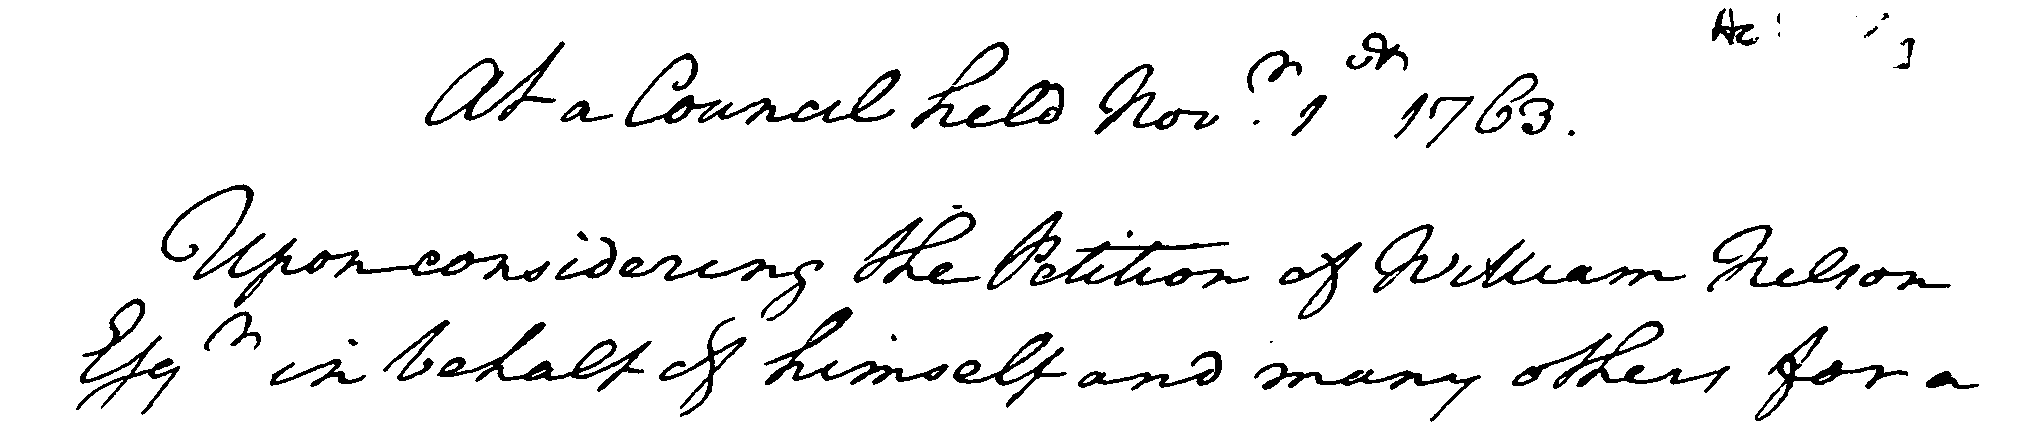 At a Council held Nov.r 1st 1763.
Upon considering the Petition of William Nelson
Esqr in behalf of himself and many others for a